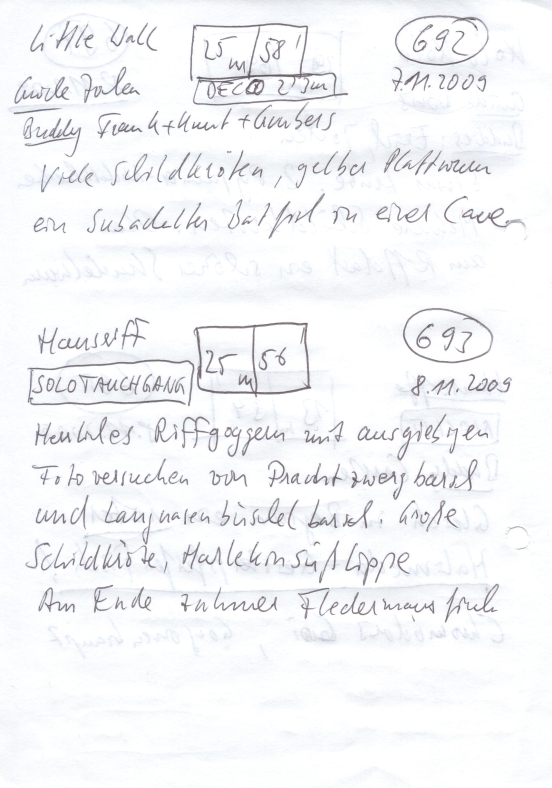 Little Wall 25 m 58' 692
Guide DECO 2'3m 7.11.2009
Buddy Frank + +
Viele Schildkröten, gelber Plattwurm
ein Subadulter Batfish in einer Cave
Hausriff 25 m 56 693
SOLOTAUCHGANG 8.11.2009
Riffgoggeln mit ausgiebigen
Fotoversuchen von Prachtzwergbarsch
und Langnasenbüschelbarsch. Große
Schildkröte, Harlekinsüßlippe
Am Ende zahmer Fledermausfisch